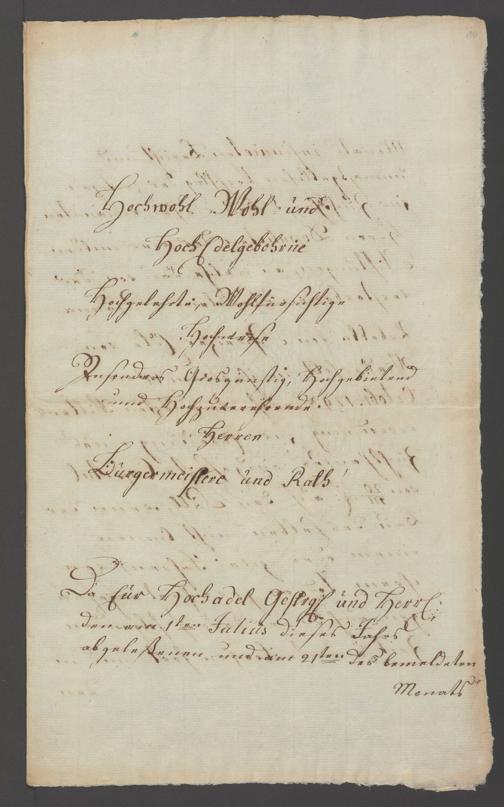 Hochwohl Wohl und
HochEdelgebohrne
Hochgelehrte, Wohlfürsichtige
Hochweise
Insonders Grosgünstig, Hochgebietend
und Hochzuverehrende
Herren
Bürgermeistere und Rath
Da Eür Hochadel Gestrg und Herrl:
den am 1ten Julius dieses Jahrs
abgeleßenen und am 21ten des bemeldeten
Monats